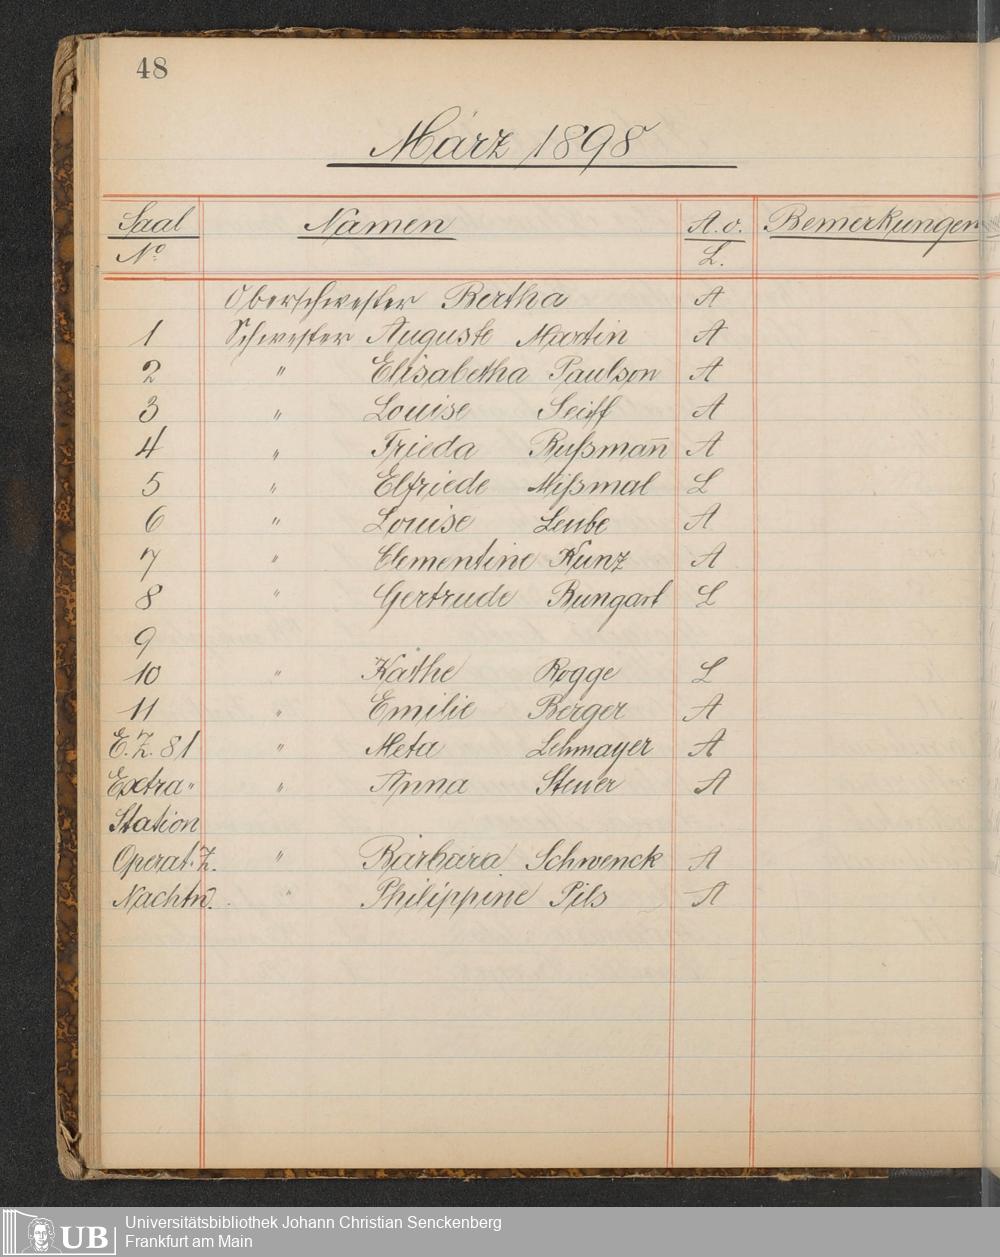 48
März 1898
Saal Namen A. o. Bemerkungen
No L.
Oberschwester Bertha A
1 Schwester Auguste Martin A
2 " Elisabetha Paulson A
3 " Louise Seiff A
4 " Frieda Rußman̅ A
5 " Elfriede Mißmal L
6 " Louise Leube A
7 " Clementine Kunz A
8 " Gertrude Bungart L
9
10 " Käthe Rogge L
11 " Emilie Berger A
E. Z. 81 " Meta Lehmayer A
Extra " " Anna Steuer A
Station
Operat. Z. " Barbara Schwenck A
Nachtw. " Philippine Pils A
UB Universitätsbibliothek Johann Christian Senckenberg
Frankfurt am Main